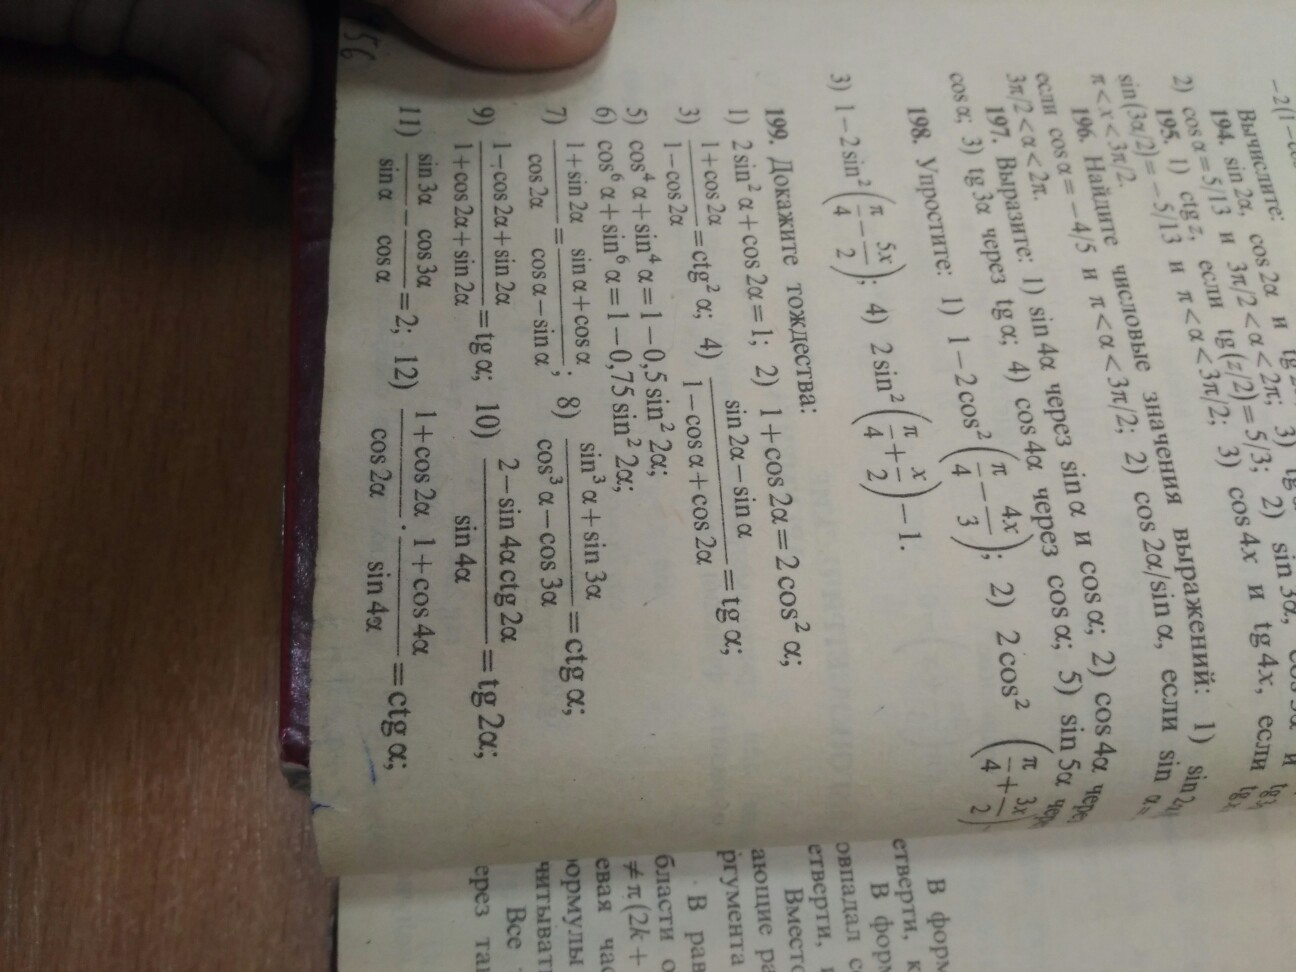 −2(1−cos
Вычислите:
194. sin 2α, cos 2α и tg
2) cos α = 5/13 и 3π/2 < α < 2π; 3)
195. 1) ctg z, если tg (z/2) = 5/3; 2) sin 3α,
sin (3α/2) = −5/13 и π < α < 3π/2; 3) cos 4x и tg 4x, если
π < x < 3π/2.
196. Найдите числовые значения выражений: 1) sin
если cos α = −4/5 и π < α < 3π/2; 2) cos 2α/sin α, если sin
3π/2 < α < 2π.
197. Выразите: 1) sin 4α через sin α и cos α; 2) cos 4α через
cos α; 3) tg 3α через tg α; 4) cos 4α через cos α; 5) sin 5α через
198. Упростите: 1) 1 − 2 cos² (π/4 − 4x/3); 2) 2 cos² (π/4 + 3x/2)
3) 1 − 2 sin² (π/4 − 5x/2); 4) 2 sin² (π/4 + x/2) − 1.
199. Докажите тождества:
1) 2 sin² α + cos 2α = 1; 2) 1 + cos 2α = 2 cos² α;
3) (1 + cos 2α)/(1 − cos 2α) = ctg² α; 4) (sin 2α − sin α)/(1 − cos α + cos 2α) = tg α;
5) cos⁴ α + sin⁴ α = 1 − 0,5 sin² 2α;
6) cos⁶ α + sin⁶ α = 1 − 0,75 sin² 2α;
7) (1 + sin 2α)/cos 2α = (sin α + cos α)/(cos α − sin α); 8) (sin³ α + sin 3α)/(cos³ α − cos 3α) = ctg α;
9) (1 − cos 2α + sin 2α)/(1 + cos 2α + sin 2α) = tg α; 10) (2 − sin 4α ctg 2α)/sin 4α = tg 2α;
11) sin 3α/sin α − cos 3α/cos α = 2; 12) (1 + cos 2α)/cos 2α · (1 + cos 4α)/sin 4α = ctg α;
56
В форм
етверти, к
В форм
овпадал
етверти,
Вместо
ающие ра
ргумента
В рав
бласти о
≠ π (2k +
евая час
ормулы
читывать
Все
ерез та